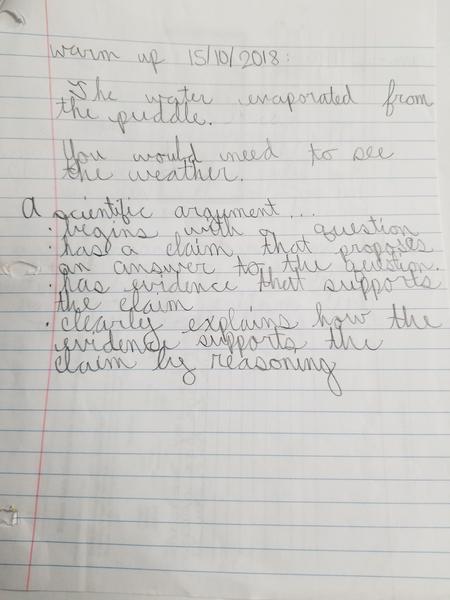 warm up 15/10/2018:
The water evaporated from
the puddle.
You would need to see
the weather.
a scientific argument...
· begins with a question
· has a claim that propoies
an answer to the question.
· has evidence that supports
the claim
· clearly explains how the
evidence supports the
claim by reasoning